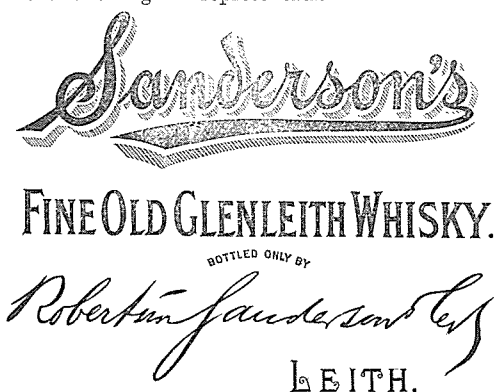 Sanderson's
FINE OLD GLENLEITH WHISKY.
BOTTLED ONLY BY
Robertson Sanderson & Co
LEITH.